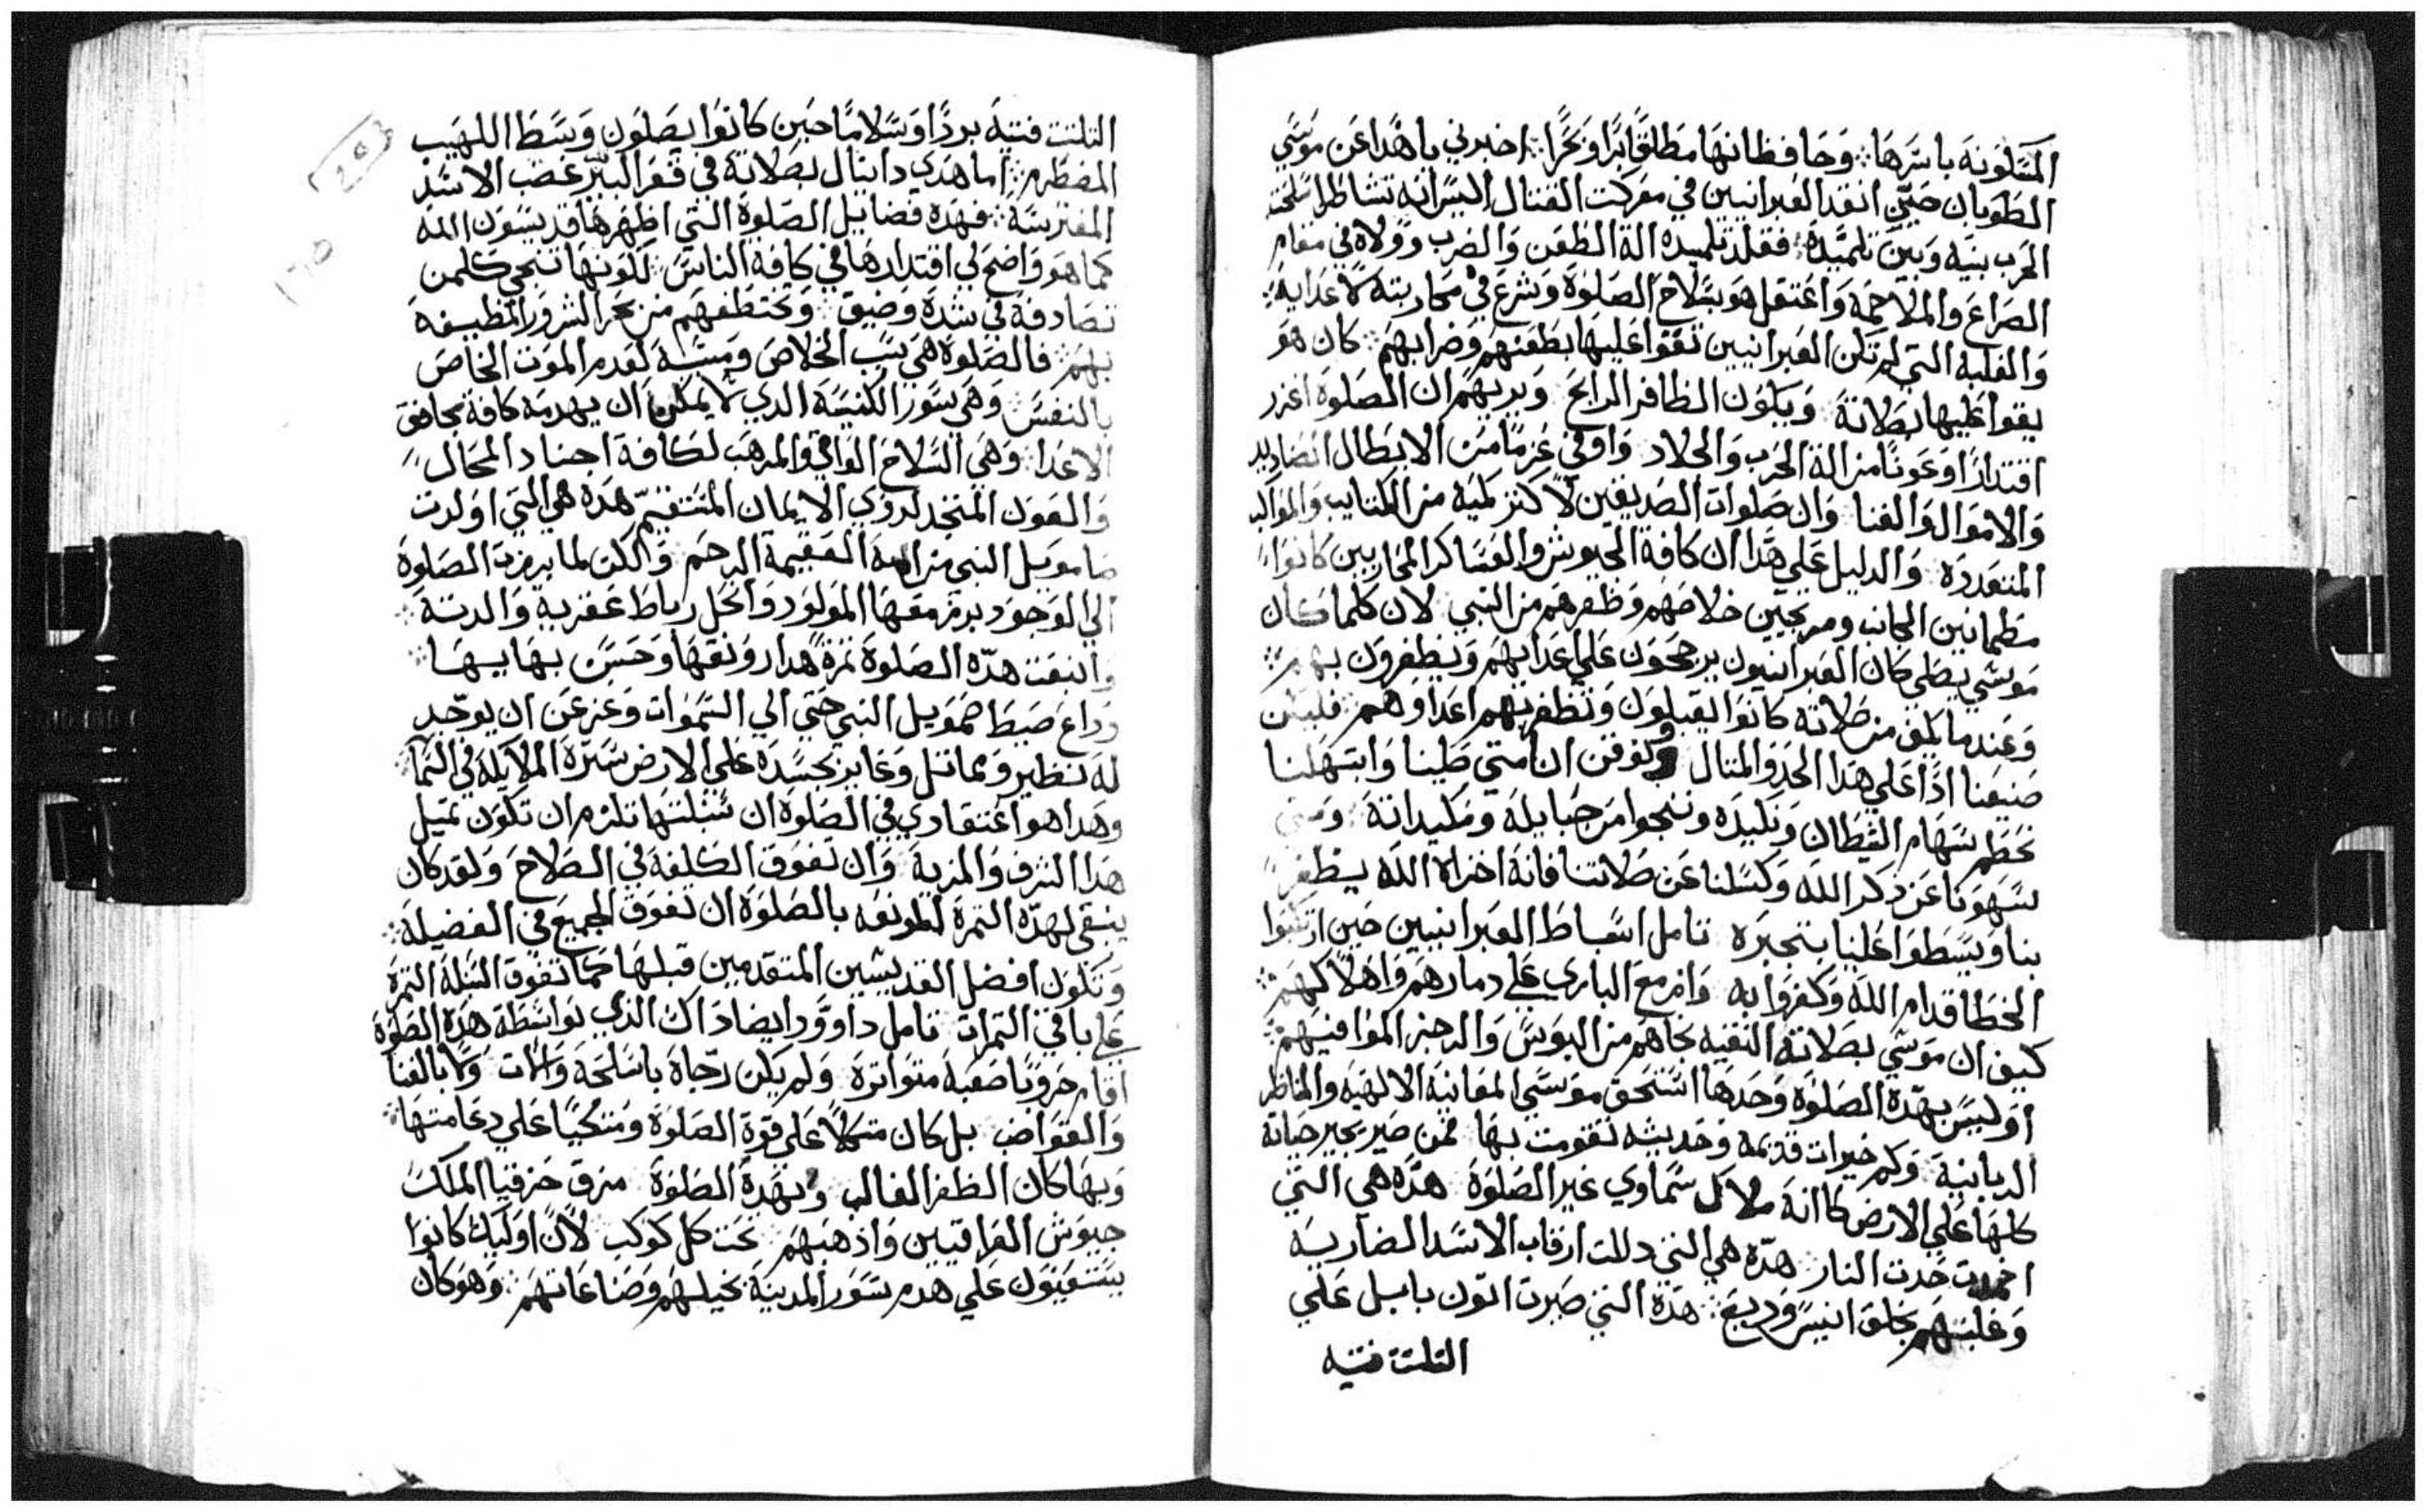 المسكونه باسرها وحافظانها مطلقًا برًا وبحرًا اخبرني يا هذا عن موسي
الطوبان حين انقد العبرانيين في معركت القتال اليس انه تشاطر اسلحة
الحرب بينه وبين تلميده فقلد تلميده الة الطعن والضرب وولاه في مقام
الصراع والملاحمه واعتقل هو بسلاح الصلوة وشرع في محاربته لاعدايه
والغلبه التي لم تكن العبرانيين تقوا عليها بطعنهم وضرابهم كان هو
يقوا عليها بصلاتة ويكون الظافر الرابح ويريهم ان الصلوة اغزر
اقتدارًا وعونًا من الة الحرب والجلاد واوفي عزمًا من الابطال الصناديد
والاموال والغنا وان صلوات الصديقين لاكتر كميه من الكتايب والمواكب
المتعددة والدليل علي هدا ان كافة الجيوش والعساكر المحاربين كانوا
مطمانين الجانب ومرتجيين خلاصهم وظفرهم من النبي لان كلما كان
موسي يصلي كان العبرانيون يرجحون علي اعدايهم ويظفرون بهم
وعندما يكف من صلاته كانوا يقبلون وتظفر بهم اعداوهم فليكن
صنيعنا ادًا علي هدا الحدو المتال ولنوقن ان متي صلينا وابتهلنا
نحطم سهام الشيطان وتكيده وننجوا من حبايلة ومكيداتة ومتي
سهونا عن دكر الله وكسلنا عن صلاتنا فانة اخزاه الله يظفر
بنا ويسطوا علينا بتجبره تامل اسباط العبرانيين حين ارتكبوا
الخطا قدام الله وكفروا به وازمع الباري علي دمارهم واهلاكهم
كيف ان موسي بصلاتة النقيه نجاهم من البوس والرجز الموافيهم
اوليس بهدة الصلوة وحدها استحق موسي المعاينة الالهيه والمناظر
الربانية وكم خيرات قديمه وحديثه تقومت بها فمن صير بجير حياتة
كلها علي الارض كاانة ملاك سماوي غير الصلوة هدة هي التي
اخمدت حدت النار هدة هي التي دللت ارقاب الاسد الضاريه
وغلبتهم بخلق انيس وديع هدة التي صيرت اتون بابل علي
التلتت فتيه
التلتت فتية بردًا وسلامًا حين كانوا يصلون وسط اللهيب
المضطرم اما هدي دانيال بصلاتة في قعر البير غضب الاسد
المفترسة فهدة فضايل الصلوة التي اظهرها قديسون الله
كما هو واضح لي اقتدارها في كافة الناس لكونها تنجي كلمن
تصادفة في شدة وضيق وتختطفهم من بحر الشرور المطيفه
بهم فالصلوة هي سبب الخلاص ومسببة لعدم الموت الخاص
بالنفس وهي سور الكنيسة الدي لا يمكن ان يهدمه كافة مجانق
الاعدا وهي السلاح الواقي والمرهب لكافة اجناد المحال
والعون المنجد لدوي الايمان المستقيم هده هي التي اولدت
صامويل النبي من امه العقيمة الرحم ولكن لما برزت الصلوة
الي الوجود برز معها المولود وانحل رباط عقرية والدتة
واتبعت هده الصلوة تمرة هدا رونقها وحسن بهايها
وداع صيط صمويل النبي حتي الي السموات وعز عن ان يوجد
له نظير ومماتل وغاير بجسده علي الارض سيرة الملايكة في السما
وهدا هو اعتقادي في الصلوة ان سنبلتها تلزم ان تكون تميل
هدا الشرف والمزية وان تفوق الكلفة في الصلاح ولقد كان
ينبغي لهدة التمرة المونعه بالصلوة ان تفوق الجميع في الفضيلة
وتكون افضل القديسين المتقدمين قبلها كما تفوق السلة التمرة
علي باقي التمرات تامل داوود ايضا داك الدي بواسطة هدة الصلوة
اقام حروبًا صعبة متواترة ولم يكن رجاة باسلحة والات ولا بالقنا
والقواضب بل كان متكلًا علي قوة الصلوة ومتكيًا علي دعامتها
وبها كان الظفر الغالب وبهدة الصلوة مزق حزقيا الملك
جيوش العراقيين وادهبهم تحت كل كوكب لان اوليك كانوا
يستعينون علي هدم سور المدينة بخيلهم وصناعاتهم وهو كان